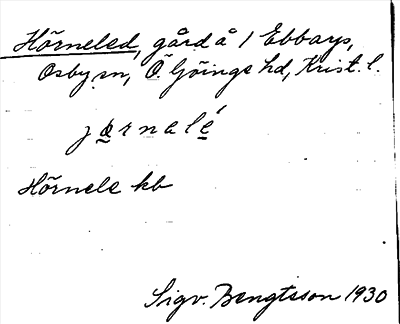 Hörneled, gård å 1 Ebbarp,
Osby sn, Ö. Göinge hd, Krist. l.
jœ̠rnalé̠
Hörnele kb
Sigv. Bengtsson 1930